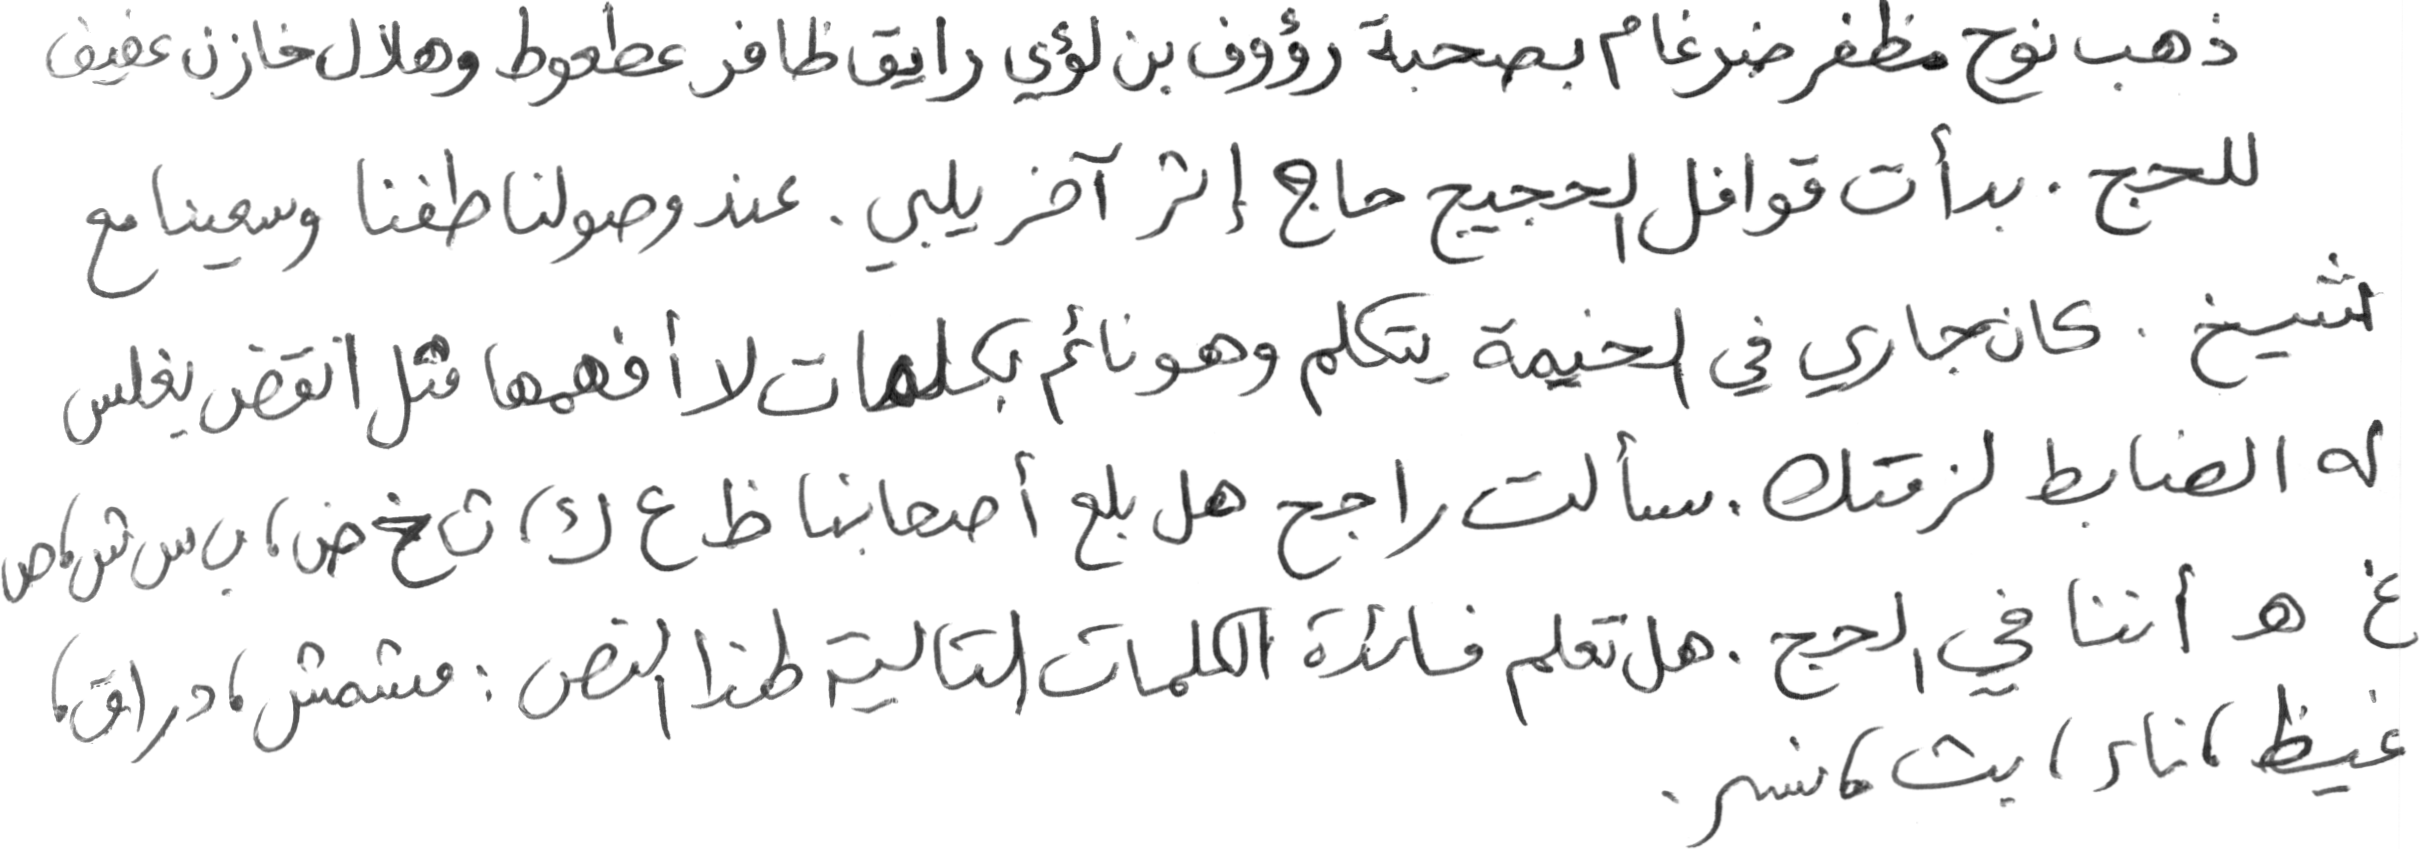 ذهب نوح مظفر ضرغام بصحبة رؤوف بن لؤي رايق ظافر عطعوط وهلال خازن عفيف
للحج . بدأت قوافل الحجيج حاج إثر آخر يلبي . عند وصولنا طفنا وسعينا مع
شيخ . كان جاري في الخيمة يتكلم وهو نائم بكلمات لا أفهمها مثل انقض يغلس
له الضابط لزقتك . سألت راجح هل بلع أصحابنا ظ ع ك، ث خ ض، ب س ش، ص
غ هـ أننا في الحج . هل تعلم فائدة الكلمات التالية لهذا النص : مشمش، دراق،
غيظ، نار، ايث، نسر .